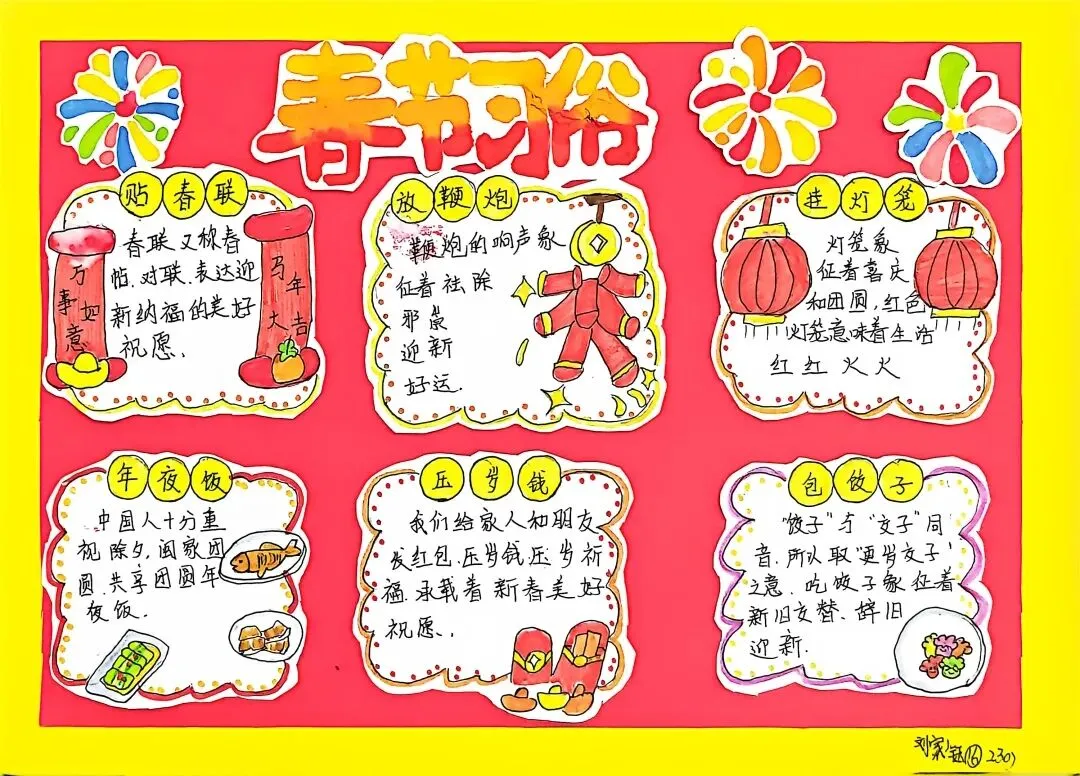 春节习俗
贴春联
春联又称春
帖.对联.表达迎
新纳福的美好
祝愿、
万事如意
马年大吉
放鞭炮
鞭炮的响声象
征着祛除
邪祟
迎新
好运.
挂灯笼
灯笼象
征着喜庆
和团圆,红色
灯笼意味着生活
红红火火
年夜饭
中国人十分重
视除夕,阖家团
圆.共享团圆年
夜饭.
压岁钱
我们给家人和朋友
发红包.压岁钱.压岁祈
福.承载着新春美好
祝愿、.
包饺子
"饺子"与"交子"同
音.所以取"更岁交子"
之意.吃饺子象征着
新旧交替、辞旧
迎新.